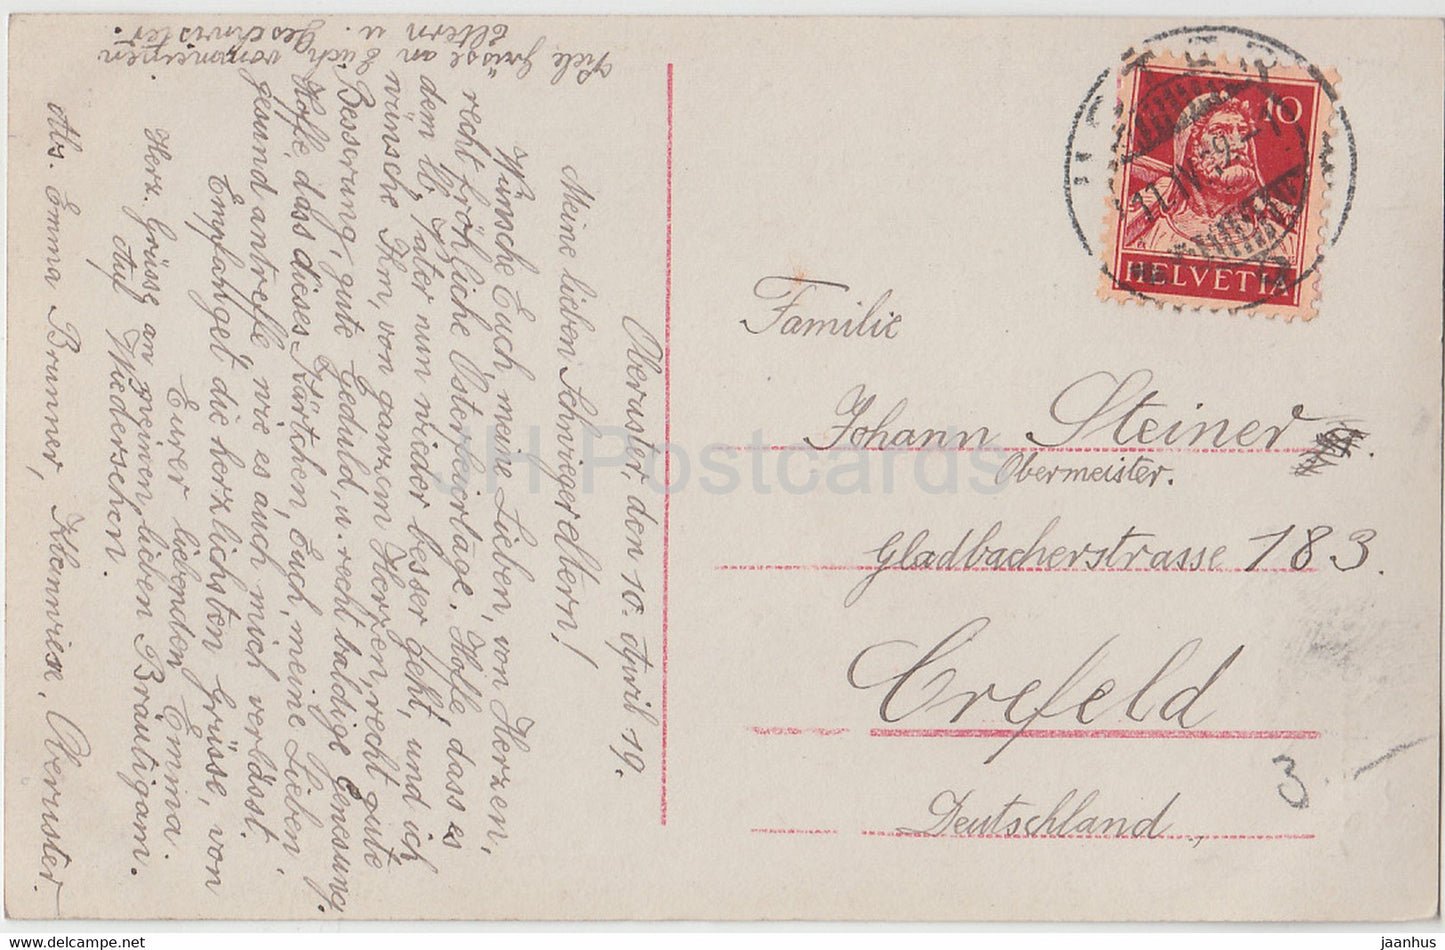 Oberuster, den 10. April 19.
Meine lieben Schwiegereltern!
Wünsche Euch, meine Lieben, von Herzen,
recht fröhliche Osterfeiertage. Hoffe, dass es
dem lb. Vater nun wieder besser geht, und ich
wünsche Ihm, von ganzem Herzen, recht gute
Besserung, gute Geduld, u. recht baldige Genesung.
Hoffe, dass dieses Kärtchen, Euch, meine Lieben
gesund antreffe, wie es auch mich verlässt.
Empfanget die herzlichsten Grüsse, von
Eurer liebenden Emma.
Herz. Grüsse an meinen, lieben Bräutigam.
Auf Wiedersehen.
Abs. Emma Brunner, Oberuster.
Viele Grüsse an Euch von meinen
Eltern u. Geschwister.
10
HELVETIA
11.IV.19
Familie
Johann Steiner
Obermeister.
Gladbacherstrasse 183.
Crefeld
Deutschland.
3
JH Postcards
https://www.jaanhus.com
jaanhus